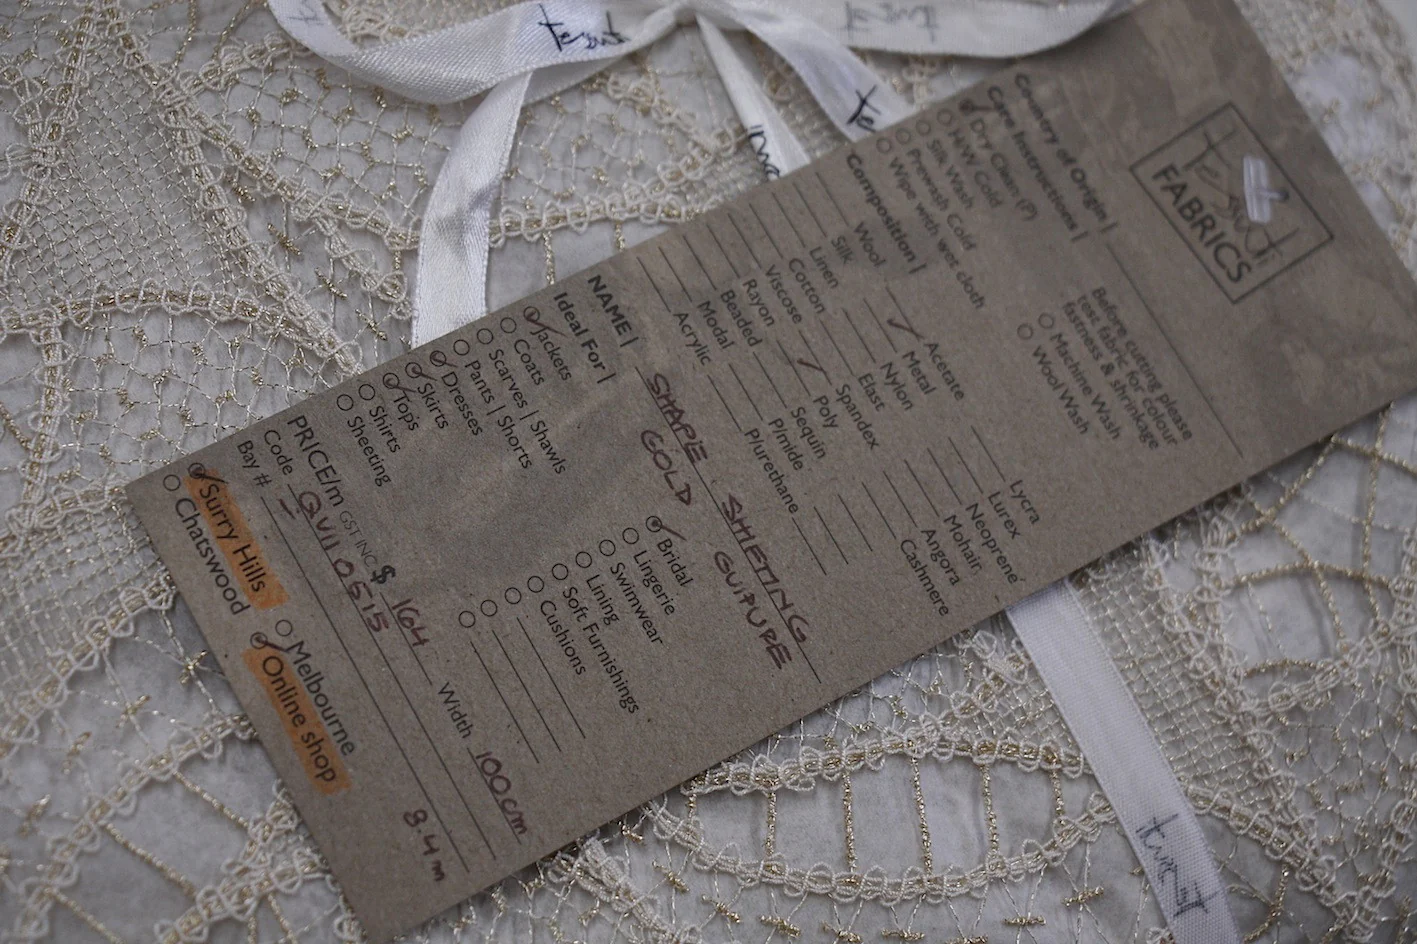 tessuti
FABRICS
Country of Origin |
Care Instructions |
Dry Clean (P)
H/W Cold
Silk Wash
Prewash Cold
Wipe with wet cloth
Before cutting please
test fabric for colour
fastness & shrinkage
Machine Wash
Wool Wash
Composition |
Wool
Silk
Linen
Cotton
Viscose
Rayon
Beaded
Modal
Acrylic
Acetate
Metal
Nylon
Elast
Spandex
Poly
Sequin
P/mide
P/urethane
Lycra
Lurex
Neoprene
Mohair
Angora
Cashmere
NAME | SHAPE SHIFTING
GOLD GUIPURE
Ideal For |
Jackets
Coats
Scarves | Shawls
Pants | Shorts
Dresses
Skirts
Tops
Shirts
Sheeting
Bridal
Lingerie
Swimwear
Lining
Soft Furnishings
Cushions
PRICE/m GST INC $ 164 Width 100cm
Code QVII 0515
Bay # 8.4m
Surry Hills
Chatswood
Melbourne
Online shop